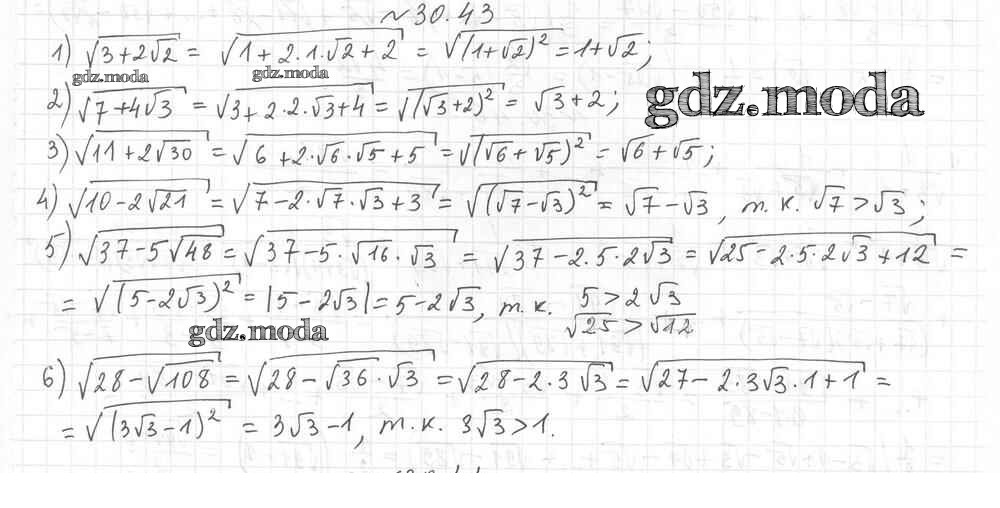 №30.43
1) √(3+2√2) = √(1+2·1·√2+2) = √((1+√2)²) = 1+√2;
gdz.moda gdz.moda
2) √(7+4√3) = √(3+2·2·√3+4) = √((√3+2)²) = √3+2;
gdz.moda
3) √(11+2√30) = √(6+2·√6·√5+5) = √((√6+√5)²) = √6+√5;
4) √(10-2√21) = √(7-2·√7·√3+3) = √((√7-√3)²) = √7-√3, т.к. √7>√3;
5) √(37-5√48) = √(37-5·√16·√3) = √(37-2·5·2√3) = √(25-2·5·2√3+12) =
= √((5-2√3)²) = |5-2√3| = 5-2√3, т.к. 5>2√3
√25>√12
gdz.moda
6) √(28-√108) = √(28-√36·√3) = √(28-2·3√3) = √(27-2·3√3·1+1) =
= √((3√3-1)²) = 3√3-1, т.к. 3√3>1.